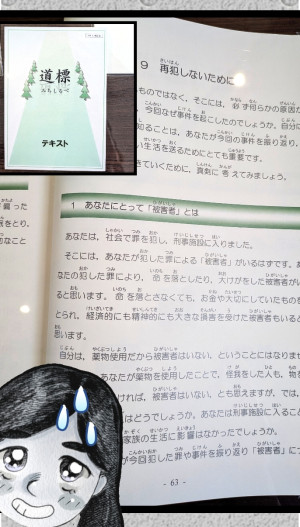 道標
みちしるべ
テキスト
9 再犯しないために
ものではなく、そこには、必ず何らかの原因が
、今回なぜ事件を起こしたのでしょうか。自分に
知ることは、あなたが今回の事件を振り返り、
い生活を送るためにとても重要です。
きていくために、真剣に考えてみましょう。
1 あなたにとって「被害者」とは
あなたは、社会で罪を犯し、刑事施設に入りました。
そこには、あなたが犯した罪による「被害者」がいるはずです。あ
なたの犯した罪により、命を落としたり、大けがをした被害者がい
ると思います。命を落とさなくても、お金や大切にしていたものを
とられ、経済的にも精神的にも大きな損害を受けた被害者もいると
思います。
自分は、薬物使用だから被害者はいない、ということにはなりませ
あなたが薬物を使用したことで、怪我をした人も、物を
ければ、被害者はいない、とも思えますが、では、
はどうでしょうか。あなたが刑事施設に入ること
家族の生活に影響はなかったでしょうか。
が今回犯した罪や事件を振り返り「被害者」につ
- 63 -